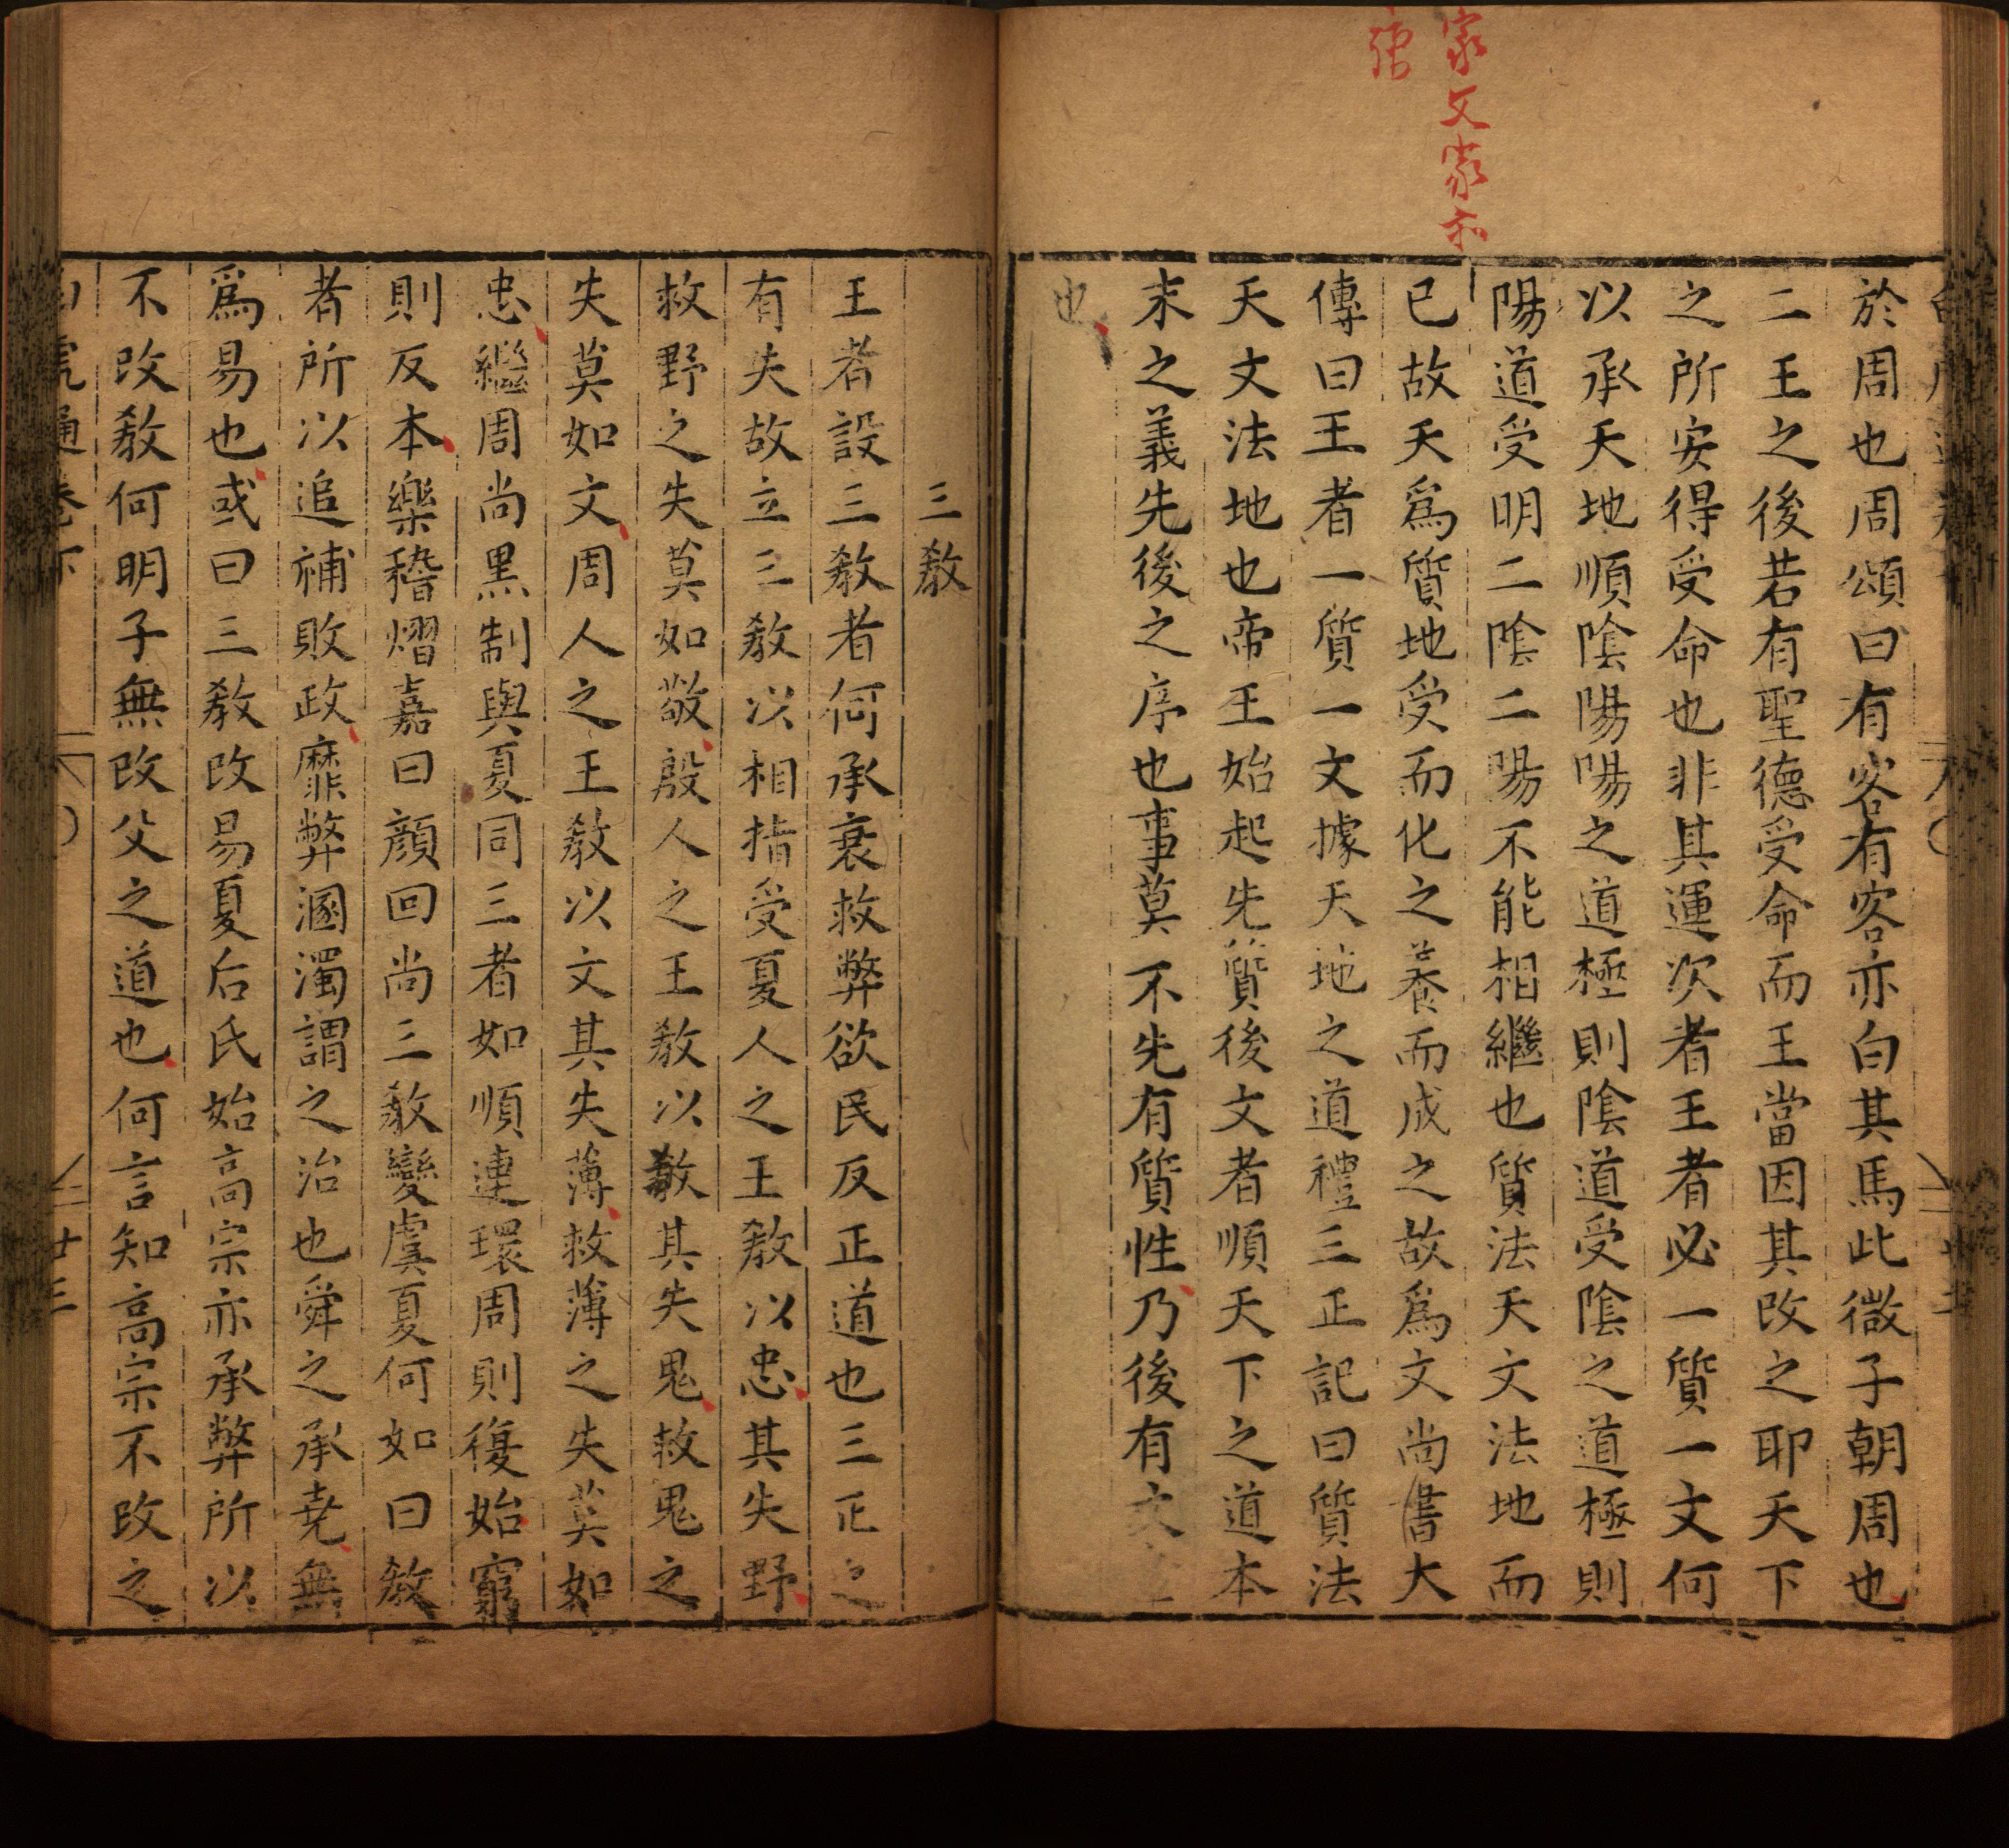 家文家亦
於周也周頌曰有客有客亦白其馬此微子朝周也
二王之後若有聖德受命而王當因其改之耶天下
之所安得受命也非其運次者王者必一質一文何
以承天地順陰陽陽之道極則陰道受陰之道極則
陽道受明二陰二陽不能相繼也質法天文法地而
已故天爲質地受而化之養而成之故爲文尚書大
傳曰王者一質一文據天地之道禮三正記曰質法
天文法地也帝王始起先質後文者順天下之道本
末之義先後之序也事莫不先有質性乃後有文
也
三教
王者設三教者何承衰救弊欲民反正道也三正之
有失故立三教以相指受夏人之王教以忠其失野
救野之失莫如敬殷人之王教以敬其失鬼救鬼之
失莫如文周人之王教以文其失薄救薄之失莫如
忠繼周尚黑制與夏同三者如順連環周則復始窮
則反本樂稽熠嘉曰顔回尚三教變虞夏何如曰教
者所以追補敗政靡弊溷濁謂之治也舜之承尭無
爲易也或曰三教改易夏后氏始高宗亦承弊所以
不改教何明子無改父之道也何言知高宗不改之
白虎通卷下 廿三